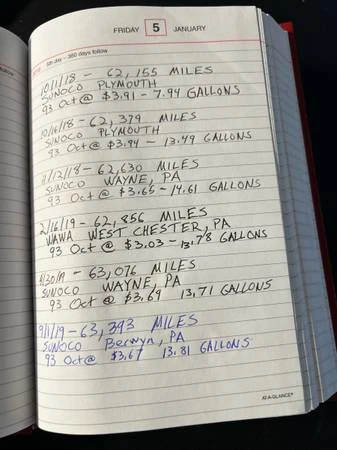 FRIDAY 5 JANUARY
5th day - 360 days follow
10/11/18 - 62,155 MILES
SUNOCO PLYMOUTH
93 Oct @ $3.91 - 7.94 GALLONS
10/16/18 - 62,379 MILES
SUNOCO PLYMOUTH
93 Oct @ $3.94 - 13.49 GALLONS
11/12/18 - 62,630 MILES
SUNOCO WAYNE, PA
93 Oct @ $3.65 - 14.61 GALLONS
2/16/19 - 62,856 MILES
WAWA WEST CHESTER, PA
93 Oct @ $3.03 - 13.78 GALLONS
4/30/19 - 63,076 MILES
SUNOCO WAYNE, PA
93 Oct @ $3.69 13.71 GALLONS
9/1/19 - 63,393 MILES
SUNOCO Berwyn, PA
93 Oct @ $3.67 13.81 GALLONS
AT-A-GLANCE®